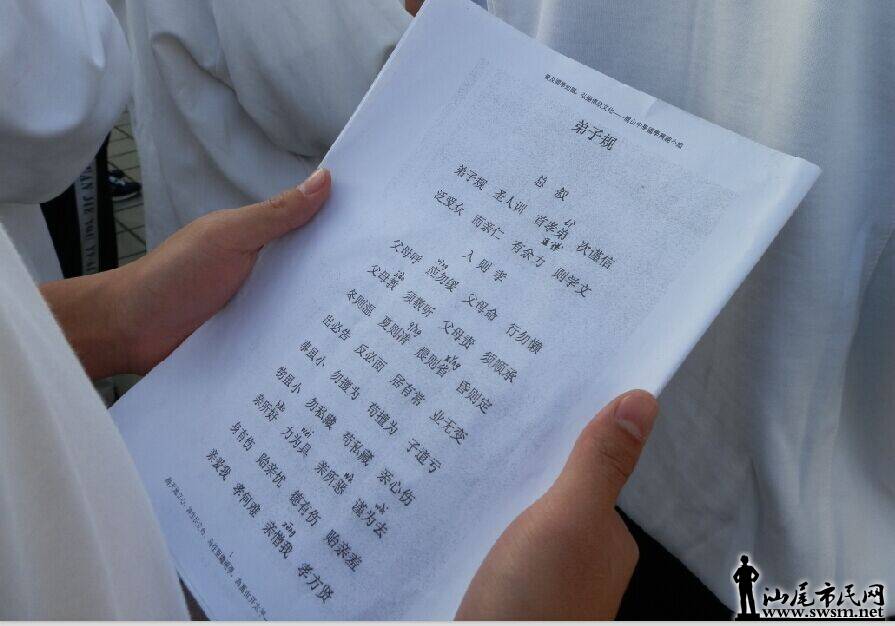 弟子规
总叙
弟子规 圣人训 首孝弟 次谨信
泛爱众 而亲仁 有余力 则学文
入则孝
父母呼 应勿缓 父母命 行勿懒
父母教 须敬听 父母责 须顺承
冬则温 夏则凊 晨则省 昏则定
出必告 反必面 居有常 业无变
事虽小 勿擅为 苟擅为 子道亏
物虽小 勿私藏 苟私藏 亲心伤
亲所好 力为具 亲所恶 谨为去
身有伤 贻亲忧 德有伤 贻亲羞
亲爱我 孝何难 亲憎我 孝方贤
汕尾市民网
www.swsm.net